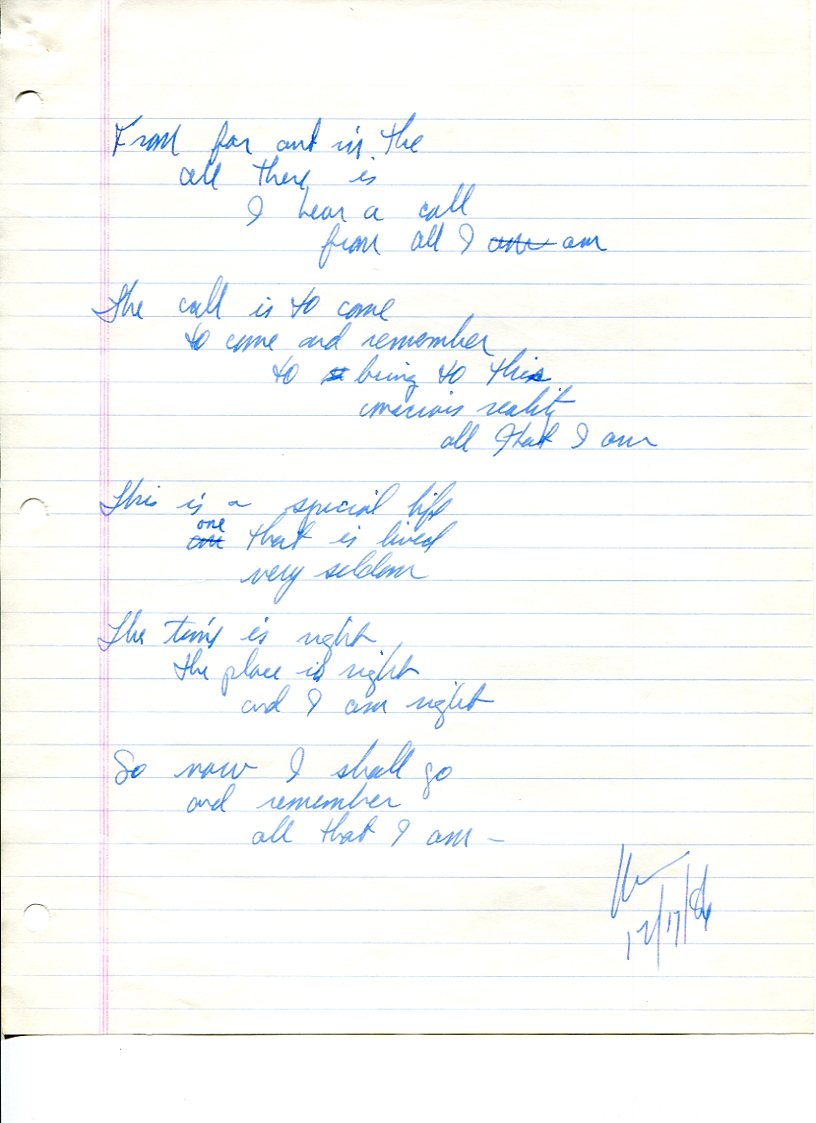 From far and in the
all there is
I hear a call
from all I am am
The call is to come
to come and remember
to bring to this
conscious reality
all that I am
This is a special life
one that is lived
very seldom
The time is right
the place is right
and I am right
So now I shall go
and remember
all that I am –
12/17/84